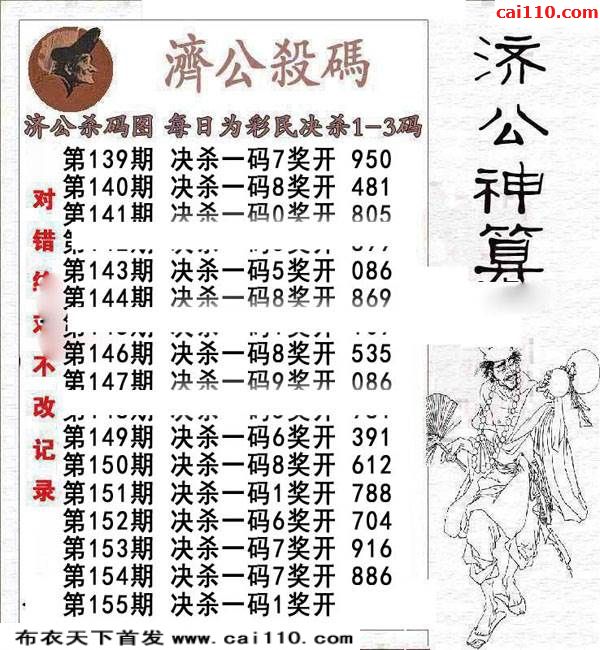 cai110.com
濟公殺碼
济公杀码图 每日为彩民决杀1-3码
第139期 决杀一码7奖开 950
第140期 决杀一码8奖开 481
第141期 决杀一码0奖开 805
第143期 决杀一码5奖开 086
第144期 决杀一码8奖开 869
第146期 决杀一码8奖开 535
第147期 决杀一码9奖开 086
第149期 决杀一码6奖开 391
第150期 决杀一码8奖开 612
第151期 决杀一码1奖开 788
第152期 决杀一码6奖开 704
第153期 决杀一码7奖开 916
第154期 决杀一码7奖开 886
第155期 决杀一码1奖开
对错
不改记录
济公神算
布衣天下首发 www.cai110.com